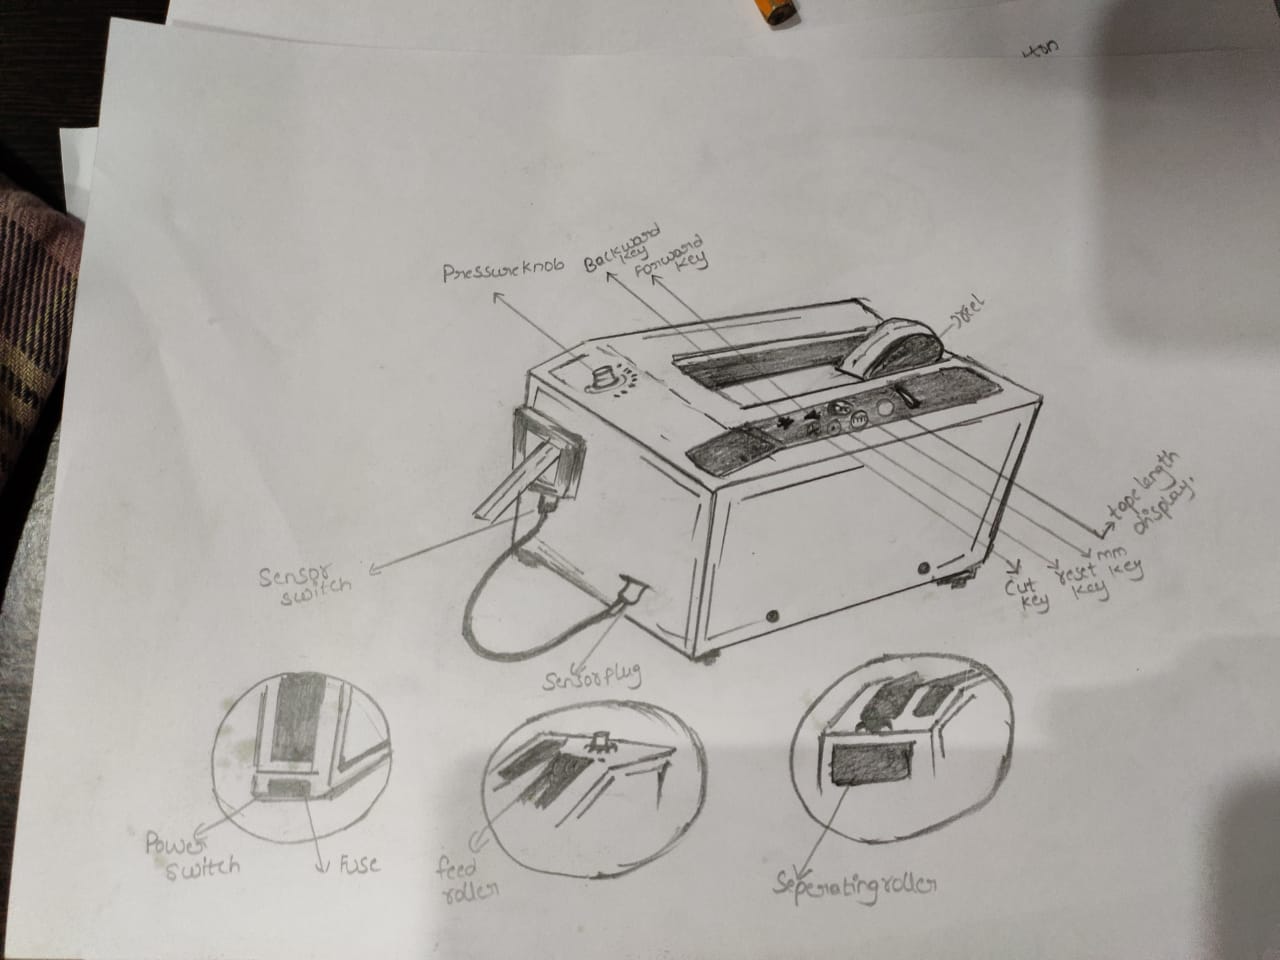 Pressure knob
Backward
key
Forward
key
reel
tape length
display.
mm
key
reset
key
Cut
key
Sensor
switch
Sensor plug
Power
switch
Fuse
feed
roller
Seperating roller